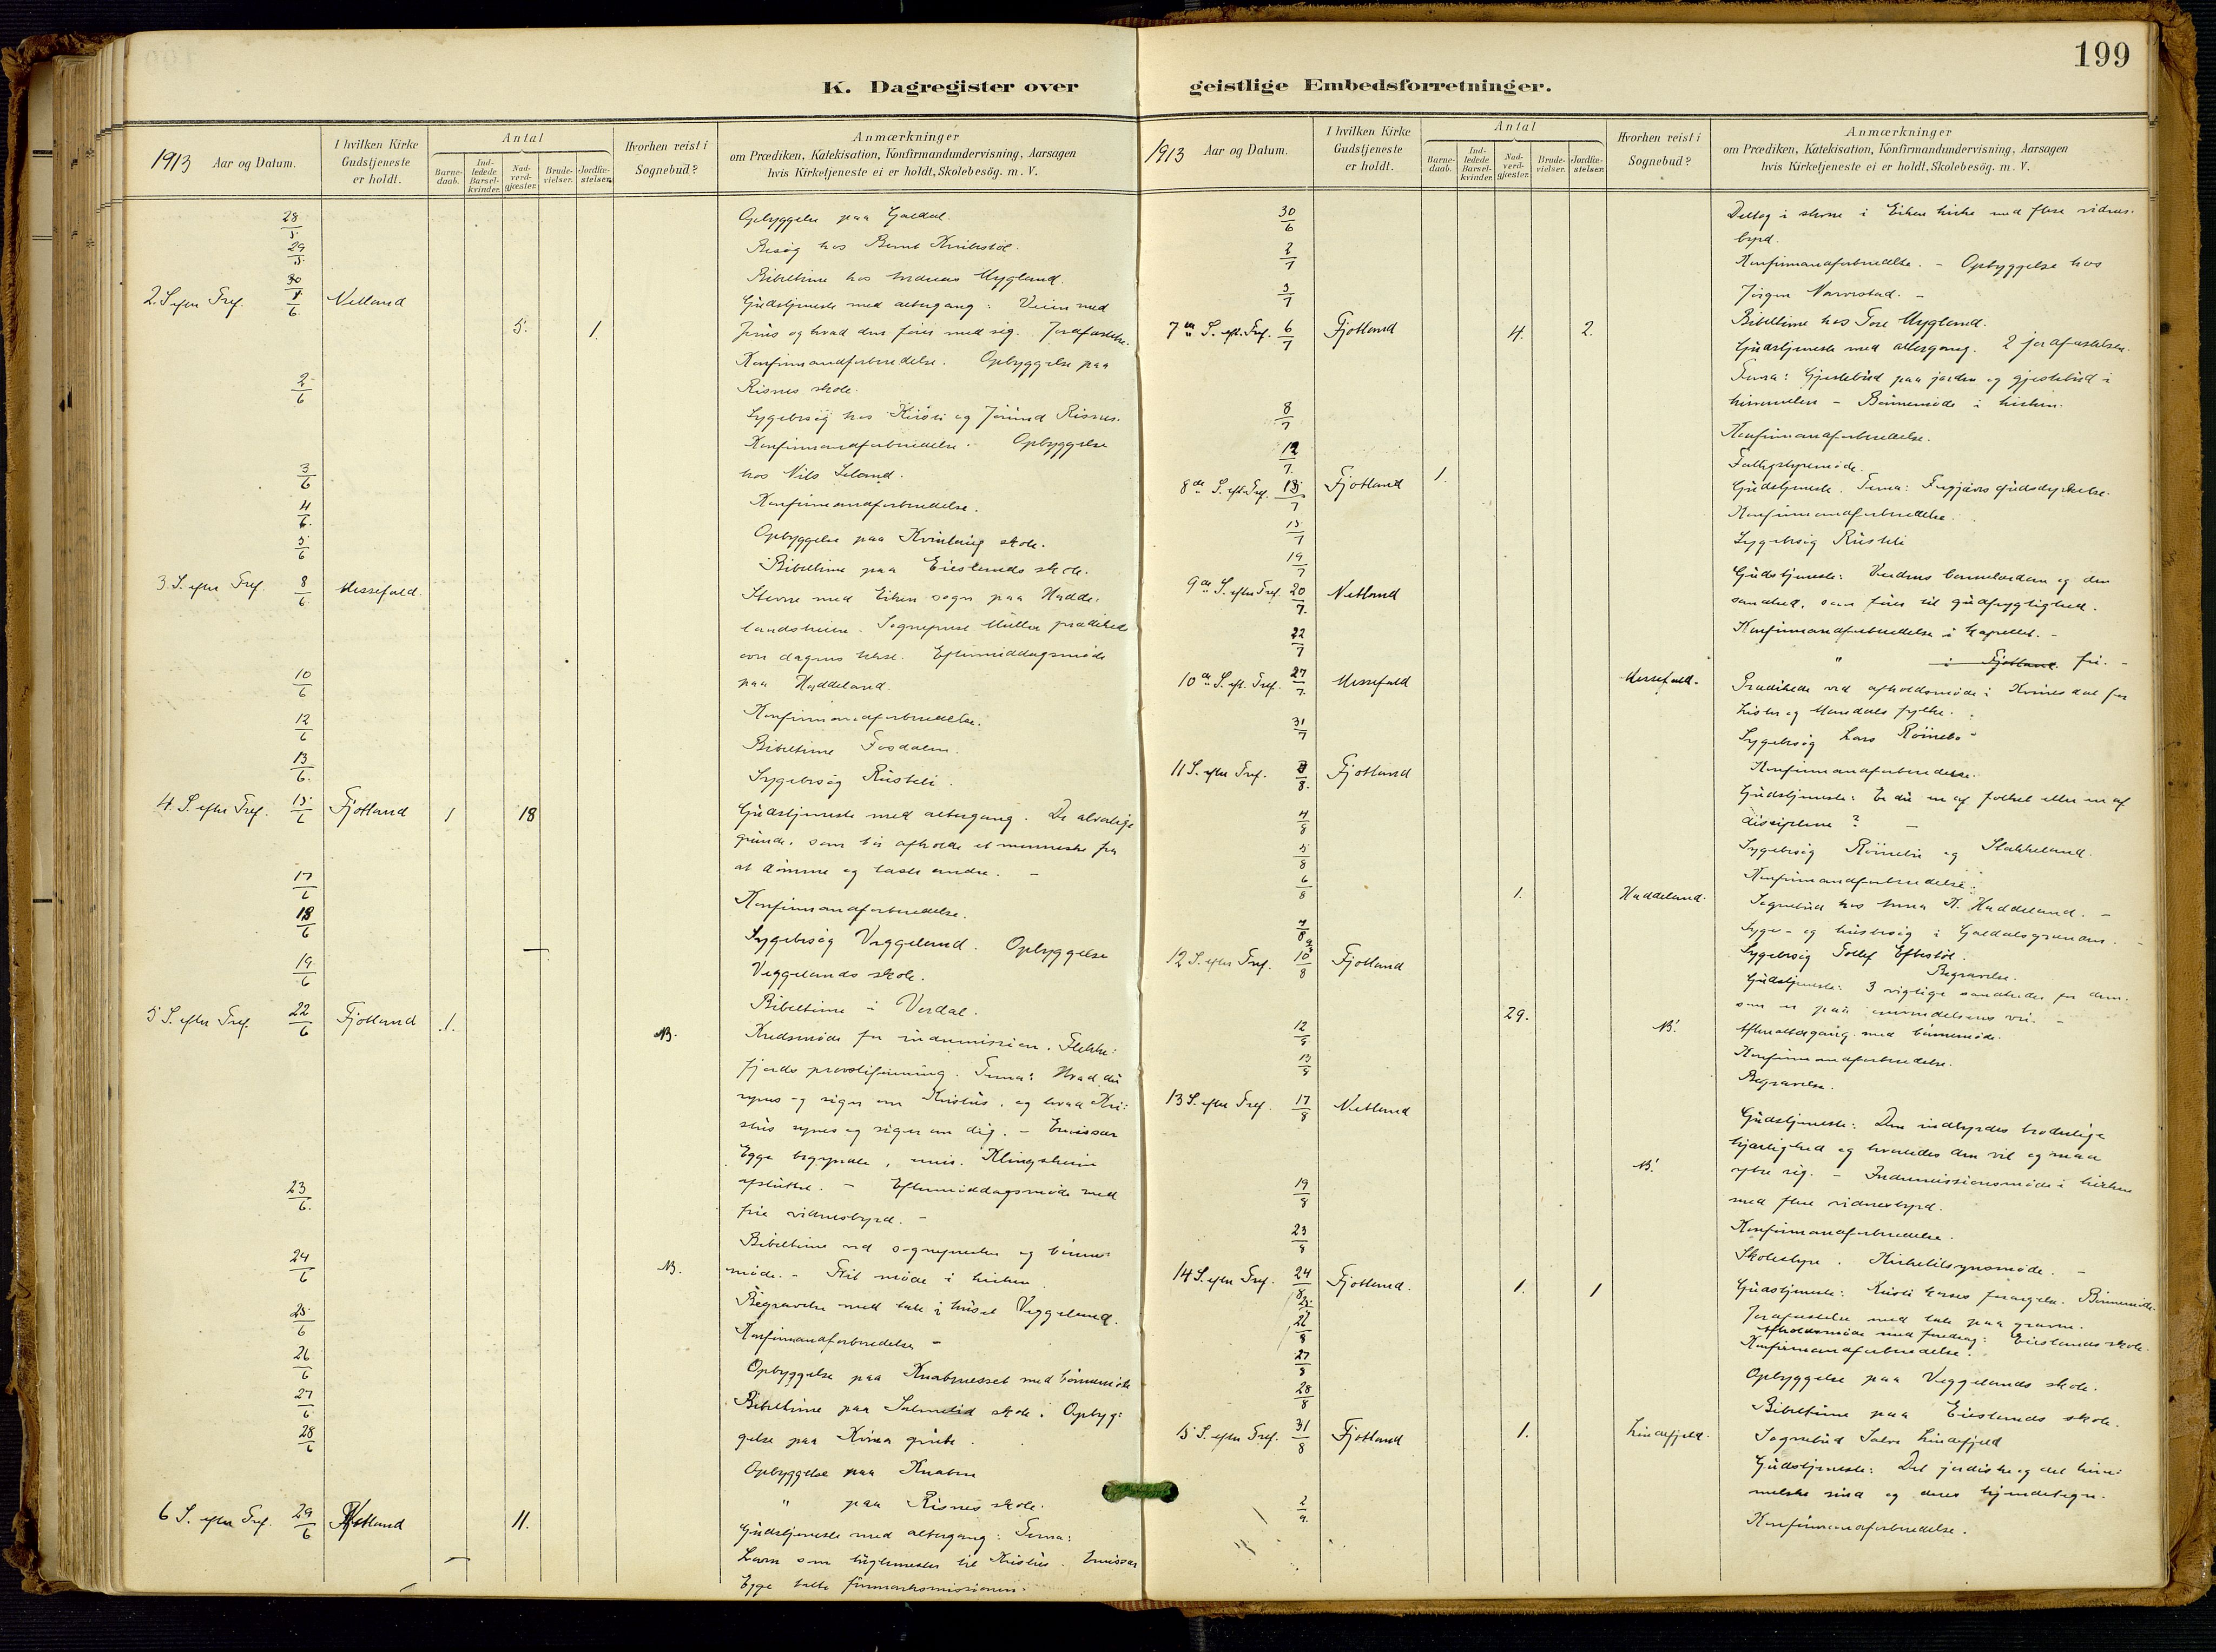 199
K. Dagregister over geistlige Embedsforretninger.
1913 Aar og Datum.
I hvilken Kirke Gudstjeneste er holdt.
Antal
Barnedaab.
Indledede Barselkvinder.
Nadverdgjæster.
Brudevielser.
Jordfæstelser.
Hvorhen reist i Sognebud?
Anmærkninger
om Prædiken, Katekisation, Konfirmandundervisning, Aarsagen
hvis Kirketjeneste ei er holdt, Skolebesög. m. V.
28/5 Opbyggelse paa Galdal.
29/5 Besög hos Bernt Knibestöl.
30/5 Bibeltime hos Andreas Mygland.
2. S. efter Tref. 1/6 Netland 5. 1. Gudstjeneste med altergang: Veien med
Jesus og hvad den fører med sig. Jordfæstelse.
Konfirmandforberedelse. Opbyggelse paa
2/6 Risnes skole.
Sygebesög hos Kirsti og Jörund Risnes.
Konfirmandforberedelse. Opbyggelse
3/6 hos Nils
4/6 Konfirmandforberedelse.
5/6 Opbyggelse paa Kvinlaug skole.
Bibeltime paa Eieslands skole.
3. S. efter Tref. 8/6 Messefald. Stevne med Eiken sogn paa Hadde-
landsheien. Sogneprest Müller prædikede
over dagens tekst. Eftermiddagsmöde
10/6 paa Haddeland.
12/6 Konfirmandforberedelse.
Bibeltime Fosdalen.
13/6 Sygebesög Rusteli.
4. S. efter Tref. 15/6 Fjotland 1 18 Gudstjeneste med altergang. De alvorlige
grunde, som bör afholde et menneske fra
at dömme og laste andre. -
17/6 Konfirmandforberedelse.
18/6 Sygebesög Veggeland. Opbyggelse
19/6 Veggelands skole.
Bibeltime i Verdal.
5 S. efter Tref. 22/6 Fjotland 1. NB. Kredsmöde for indremission. Flekke-
fjords provstiforening. Tema: Hvad du
synes og siger om Kristus, og hvad Kri-
stus synes og siger om dig. - Emissær
Egge begyndte, mis. Klingsheim
23/6 afsluttet. - Eftermiddagsmöde med
frie vidnesbyrd. -
Bibeltime ved sognepresten og bönne-
24/6 NB. möde. - Frit möde i kirken.
Begravelse med tale i huset Veggeland.
25/6 Konfirmandforberedelse -
26/6 Opbyggelse paa Knabmesset med bönnemöde
27/6 Bibeltime paa Salmelid skole. Opbyg-
28/6 gelse paa Kvina grube.
Opbyggelse paa Knaben
" paa Risnes skole.
6 S. efter Tref. 29/6 Netland 11. Gudstjeneste med altergang: Tema:
Loven som tugtemester til Kristus. Emissær
Egge talte finmarksmissionen.
1913 Aar og Datum.
I hvilken Kirke Gudstjeneste er holdt.
Antal
Barnedaab.
Indledede Barselkvinder.
Nadverdgjæster.
Brudevielser.
Jordfæstelser.
Hvorhen reist i Sognebud?
Anmærkninger
om Prædiken, Katekisation, Konfirmandundervisning, Aarsagen
hvis Kirketjeneste ei er holdt, Skolebesög. m. V.
30/6 Deltog i stevne i Eiken kirke med flere vidnes-
byrd.
2/7 Konfirmandforberedelse. - Opbyggelse hos
3/7 Jörgen Narvestad. -
Bibeltime hos Tore Mygland.
7de S. eft. Tref. 6/7 Fjotland 4. 2. Gudstjeneste med altergang. 2 jordfæstelser.
Tema: Gjestebud paa jorden og gjestebud i
himmelen - Bönnemöde i kirken.
8/7 Konfirmandforberedelse.
12/7 Fattigstyremöde.
8de S. eft. Tref. 13/7 Fjotland 1. Gudstjeneste. Tema: Gudsdyrkelse.
15/7 Konfirmandforberedelse.
19/7 Sygebesög Rusteli
9de S. efter Tref. 20/7 Netland Gudstjeneste: Verdens barnelærdom og den
sandhed, som fører til gudfrygtighed.
22/7 Konfirmandforberedelse i kapellet. -
" i Fjotland fri. -
10de S. eft. Tref. 27/7 Messefald Messefald. Prædikede ved afholdsmöde i Kvinesdal for
Lister og Mandals fylke.
31/7 Sygebesög Lars Röinebö
Konfirmandforberedelse.
11 S. efter Tref. 3/8 Fjotland Gudstjeneste: Er du en af folket eller en af
disciplene? -
4/8 Sygebesög Röinebö og Stakkeland.
5/8 Konfirmandforberedelse.
6/8 1. Haddeland. Sognebud hos Anna K. Haddeland. -
7/8 Syge- og husbesög i Galdalsgrænden. -
9/8 Sygebesög Tollef Eftestöl.
Begravelse.
12 S. efter Tref. 10/8 Fjotland Gudstjeneste: 3 vigtige sandheder for dem,
som er paa omvendelsens vei. -
29. NB! Aftenaltergang med bönnemöde.
12/8 Konfirmandforberedelse.
13/8 Begravelse.
13 S. efter Tref. 17/8 Netland Gudstjeneste: Den indbyrdes broderlige
kjærlighed og hvorledes den vil og maa
NB! ytre sig. - Indremissionsmöde i kirken
med flere vidnesbyrd.
19/8 Konfirmandforberedelse.
23/8 Skolestyre. Kirketilsynsmöde. -
14 S. efter Tref. 24/8 Fjotland. 1. 1 Gudstjeneste: Kristi korses forargelse. Bönnemöde.
25/8 Jordfæstelse med tale paa graven.
Afholdsmöde med foredrag: Eieslands skole.
26/8 Konfirmandforberedelse.
27/8 Opbyggelse paa Veggelands skole.
28/8 Bibeltime paa Eieslands skole.
1. Lindefjeld. Sognebud Salve Lindefjeld
15 S. efter Tref. 31/8 Fjotland Gudstjeneste: Det jordiske og det him-
melske sind og deres kjendetegn.
2/9. Konfirmandforberedelse.